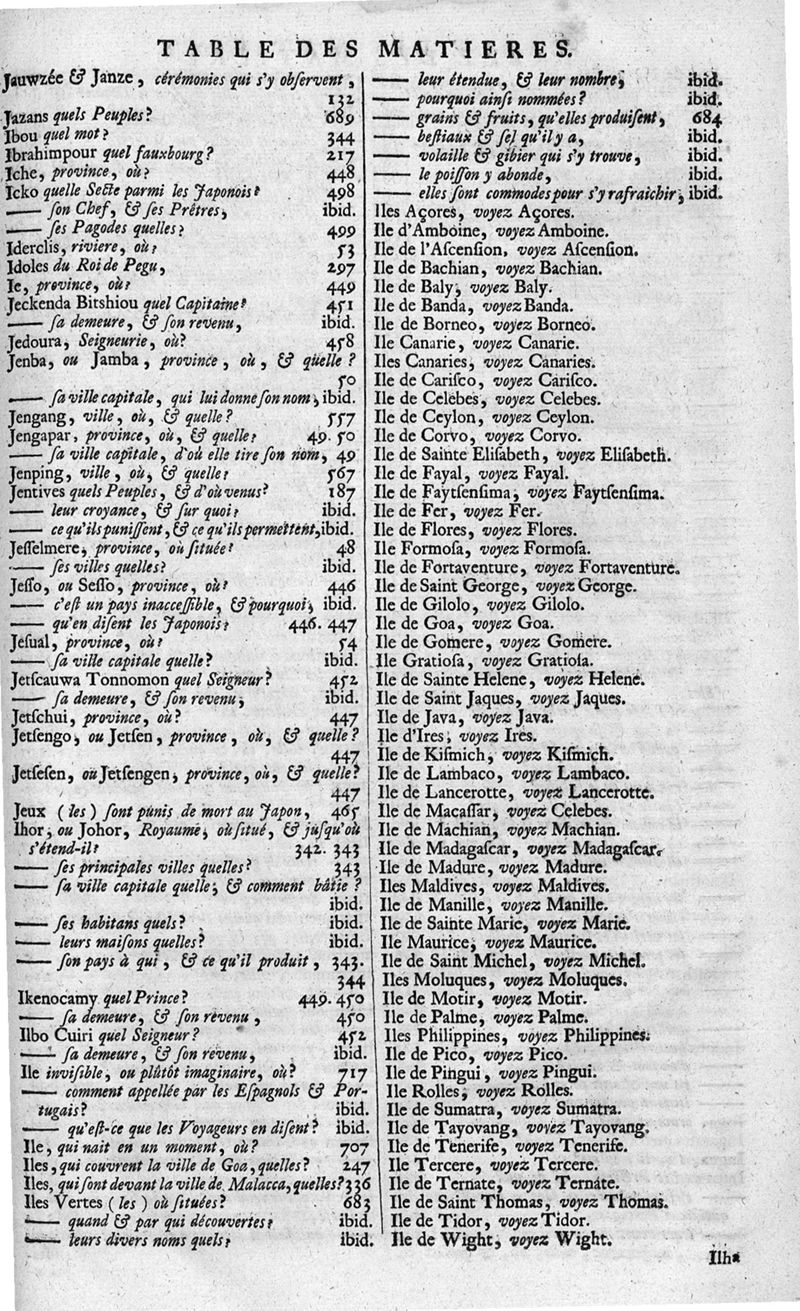 TABLE DES MATIERES.
Jauwzée & Janze, cérémonies qui s'y obſervent,
132
Jazans quels Peuples? 689
Ibou quel mot? 344
Ibrahimpour quel fauxbourg? 217
Iche, province, où? 448
Icko quelle Secte parmi les Japonois? 498
—— ſon Chef, & ſes Prêtres, ibid.
—— ſes Pagodes quelles? 499
Iderclis, riviere, où? 53
Idoles du Roi de Pegu, 297
Ie, province, où? 449
Jeckenda Bitshiou quel Capitaine? 451
—— ſa demeure, & ſon revenu, ibid.
Jedoura, Seigneurie, où? 458
Jenba, ou Jamba, province, où, & quelle?
50
—— ſa ville capitale, qui lui donne ſon nom, ibid.
Jengang, ville, où, & quelle? 557
Jengapar, province, où, & quelle? 49. 50
—— ſa ville capitale, d'où elle tire ſon nom, 49
Jenping, ville, où, & quelle? 567
Jentives quels Peuples, & d'où venus? 187
—— leur croyance, & ſur quoi? ibid.
—— ce qu'ils puniſſent, & ce qu'ils permettent, ibid.
Jeſſelmere, province, où ſituée? 48
—— ſes villes quelles? ibid.
Jeſſo, ou Seſſo, province, où? 446
—— c'eſt un pays inacceſſible, & pourquoi, ibid.
—— qu'en diſent les Japonois? 446. 447
Jeſual, province, où? 54
—— ſa ville capitale quelle? ibid.
Jetſcauwa Tonnomon quel Seigneur? 452
—— ſa demeure, & ſon revenu, ibid.
Jetſchui, province, où? 447
Jetſengo, ou Jetſen, province, où, & quelle?
447
Jetſeſen, ou Jetſengen, province, où, & quelle?
447
Jeux (les) ſont punis de mort au Japon, 465
Ihor, ou Johor, Royaume, où ſitué, & juſqu'où
s'étend-il? 342. 343
—— ſes principales villes quelles? 343
—— ſa ville capitale quelle, & comment bâtie?
ibid.
—— ſes habitans quels? ibid.
—— leurs maiſons quelles? ibid.
—— ſon pays à qui, & ce qu'il produit, 343.
344
Ikenocamy quel Prince? 449. 450
—— ſa demeure, & ſon revenu, 450
Ilbo Cuiri quel Seigneur? 452
—— ſa demeure, & ſon revenu, ibid.
Ile inviſible, ou plûtôt imaginaire, où? 717
—— comment appellée par les Eſpagnols & Por-
tugais? ibid.
—— qu'eſt-ce que les Voyageurs en diſent? ibid.
Ile, qui nait en un moment, où? 707
Iles, qui couvrent la ville de Goa, quelles? 247
Iles, qui ſont devant la ville de Malacca, quelles? 336
Iles Vertes (les) où ſituées? 683
—— quand & par qui découvertes? ibid.
—— leurs divers noms quels? ibid.
—— leur étendue, & leur nombre, ibid.
—— pourquoi ainſi nommées? ibid.
—— grains & fruits, qu'elles produiſent, 684
—— beſtiaux & ſel qu'il y a, ibid.
—— volaille & gibier qui s'y trouve, ibid.
—— le poiſſon y abonde, ibid.
—— elles ſont commodes pour s'y rafraichir, ibid.
Iles Açores, voyez Açores.
Ile d'Amboine, voyez Amboine.
Ile de l'Aſcenſion, voyez Aſcenſion.
Ile de Bachian, voyez Bachian.
Ile de Baly, voyez Baly.
Ile de Banda, voyez Banda.
Ile de Borneo, voyez Borneo.
Ile Canarie, voyez Canarie.
Iles Canaries, voyez Canaries.
Ile de Cariſco, voyez Cariſco.
Ile de Celebes, voyez Celebes.
Ile de Ceylon, voyez Ceylon.
Ile de Corvo, voyez Corvo.
Ile de Sainte Eliſabeth, voyez Eliſabeth.
Ile de Fayal, voyez Fayal.
Ile de Faytſenſima, voyez Faytſenſima.
Ile de Fer, voyez Fer.
Ile de Flores, voyez Flores.
Ile Formoſa, voyez Formoſa.
Ile de Fortaventure, voyez Fortaventure.
Ile de Saint George, voyez George.
Ile de Gilolo, voyez Gilolo.
Ile de Goa, voyez Goa.
Ile de Gomere, voyez Gomere.
Ile Gratioſa, voyez Gratioſa.
Ile de Sainte Helene, voyez Helene.
Ile de Saint Jaques, voyez Jaques.
Ile de Java, voyez Java.
Ile d'Ires, voyez Ires.
Ile de Kiſmich, voyez Kiſmich.
Ile de Lambaco, voyez Lambaco.
Ile de Lancerotte, voyez Lancerotte.
Ile de Macaſſar, voyez Celebes.
Ile de Machian, voyez Machian.
Ile de Madagaſcar, voyez Madagaſcar.
Ile de Madure, voyez Madure.
Iles Maldives, voyez Maldives.
Ile de Manille, voyez Manille.
Ile de Sainte Marie, voyez Marie.
Ile Maurice, voyez Maurice.
Ile de Saint Michel, voyez Michel.
Iles Moluques, voyez Moluques.
Ile de Motir, voyez Motir.
Ile de Palme, voyez Palme.
Iles Philippines, voyez Philippines.
Ile de Pico, voyez Pico.
Ile de Pingui, voyez Pingui.
Ile Rolles, voyez Rolles.
Ile de Sumatra, voyez Sumatra.
Ile de Tayovang, voyez Tayovang.
Ile de Tenerife, voyez Tenerife.
Ile Tercere, voyez Tercere.
Ile de Ternate, voyez Ternate.
Ile de Saint Thomas, voyez Thomas.
Ile de Tidor, voyez Tidor.
Ile de Wight, voyez Wight.
Ilha